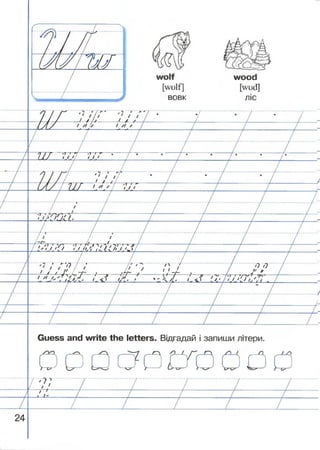 W w
wolf wood
[wulf] [wud]
вовк ліс
W W W
w w w
W w W w
wood
two windows
What is it? It is a wolf.
Guess and write the letters. Відгадай і запиши літери.
24